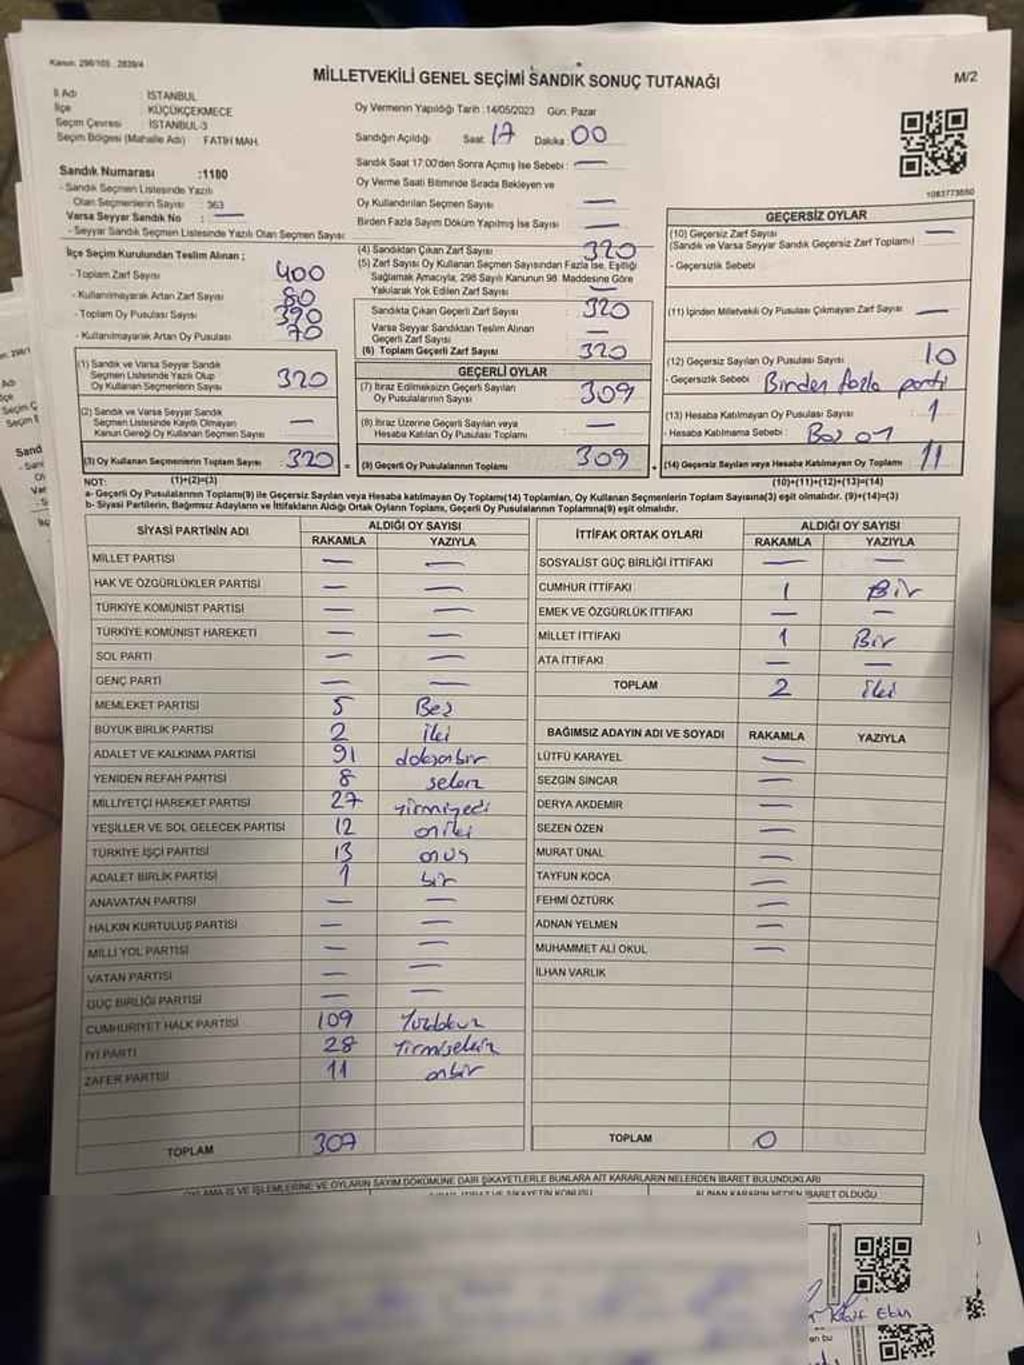 Kanun: 298/105 2839/4
MİLLETVEKİLİ GENEL SEÇİMİ SANDIK SONUÇ TUTANAĞI
M/2
İl Adı : İSTANBUL
İlçe : KÜÇÜKÇEKMECE
Seçim Çevresi : İSTANBUL-3
Seçim Bölgesi (Mahalle Adı) FATİH MAH.
Sandık Numarası :1180
- Sandık Seçmen Listesinde Yazılı
Olan Seçmenlerin Sayısı : 363
Varsa Seyyar Sandık No : —
- Seyyar Sandık Seçmen Listesinde Yazılı Olan Seçmen Sayısı
İlçe Seçim Kurulundan Teslim Alınan ;
- Toplam Zarf Sayısı 400
- Kullanılmayarak Artan Zarf Sayısı 80
- Toplam Oy Pusulası Sayısı 390
- Kullanılmayarak Artan Oy Pusulası 70
(1) Sandık ve Varsa Seyyar Sandık
Seçmen Listesinde Yazılı Olup
Oy Kullanan Seçmenlerin Sayısı 320
(2) Sandık ve Varsa Seyyar Sandık
Seçmen Listesinde Kayıtlı Olmayan
Kanun Gereği Oy Kullanan Seçmen Sayısı —
(3) Oy Kullanan Seçmenlerin Toplam Sayısı 320 =
Oy Vermenin Yapıldığı Tarih :14/05/2023 Gün: Pazar
Sandığın Açıldığı Saat: 17 Dakika: 00
Sandık Saat 17:00'den Sonra Açımış İse Sebebi : —
Oy Verme Saati Bitiminde Sırada Bekleyen ve
Oy Kullandırılan Seçmen Sayısı —
Birden Fazla Sayım Döküm Yapılmış İse Sayısı —
(4) Sandıktan Çıkan Zarf Sayısı 320
(5) Zarf Sayısı Oy Kullanan Seçmen Sayısından Fazla İse, Eşitliği
Sağlamak Amacıyla, 298 Sayılı Kanunun 98. Maddesine Göre
Yakılarak Yok Edilen Zarf Sayısı —
Sandıkta Çıkan Geçerli Zarf Sayısı 320
Varsa Seyyar Sandıktan Teslim Alınan
Geçerli Zarf Sayısı —
(6) Toplam Geçerli Zarf Sayısı 320
GEÇERLİ OYLAR
(7) İtiraz Edilmeksizin Geçerli Sayılan
Oy Pusulalarının Sayısı 309
(8) İtiraz Üzerine Geçerli Sayılan veya
Hesaba Katılan Oy Pusulaları Toplamı —
(9) Geçerli Oy Pusulalarının Toplamı 309 +
1083773850
GEÇERSİZ OYLAR
(10) Geçersiz Zarf Sayısı —
(Sandık ve Varsa Seyyar Sandık Geçersiz Zarf Toplamı)
- Geçersizlik Sebebi
(11) İçinden Milletvekili Oy Pusulası Çıkmayan Zarf Sayısı —
(12) Geçersiz Sayılan Oy Pusulası Sayısı 10
- Geçersizlik Sebebi Birden fazla parti
(13) Hesaba Katılmayan Oy Pusulası Sayısı 1
- Hesaba Katılmama Sebebi : Boş oy
(14) Geçersiz Sayılan veya Hesaba Katılmayan Oy Toplamı 11
NOT: (1)+(2)=(3) (10)+(11)+(12)+(13)=(14)
a- Geçerli Oy Pusulalarının Toplamı(9) ile Geçersiz Sayılan veya Hesaba katılmayan Oy Toplamı(14) Toplamları, Oy Kullanan Seçmenlerin Toplam Sayısına(3) eşit olmalıdır. (9)+(14)=(3)
b- Siyasi Partilerin, Bağımsız Adayların ve İttifakların Aldığı Ortak Oyların Toplamı, Geçerli Oy Pusulalarının Toplamına(9) eşit olmalıdır.
SİYASİ PARTİNİN ADI ALDIĞI OY SAYISI
RAKAMLA YAZIYLA
MİLLET PARTİSİ — —
HAK VE ÖZGÜRLÜKLER PARTİSİ — —
TÜRKİYE KOMÜNİST PARTİSİ — —
TÜRKİYE KOMÜNİST HAREKETİ — —
SOL PARTİ — —
GENÇ PARTİ — —
MEMLEKET PARTİSİ 5 Beş
BÜYÜK BİRLİK PARTİSİ 2 iki
ADALET VE KALKINMA PARTİSİ 91 doksanbir
YENİDEN REFAH PARTİSİ 8 sekiz
MİLLİYETÇİ HAREKET PARTİSİ 27 yirmiyedi
YEŞİLLER VE SOL GELECEK PARTİSİ 12 oniki
TÜRKİYE İŞÇİ PARTİSİ 13 onüç
ADALET BİRLİK PARTİSİ 1 bir
ANAVATAN PARTİSİ — —
HALKIN KURTULUŞ PARTİSİ — —
MİLLİ YOL PARTİSİ — —
VATAN PARTİSİ — —
GÜÇ BİRLİĞİ PARTİSİ — —
CUMHURİYET HALK PARTİSİ 109 Yüzdokuz
İYİ PARTİ 28 Yirmisekiz
ZAFER PARTİSİ 11 onbir
TOPLAM 307
İTTİFAK ORTAK OYLARI ALDIĞI OY SAYISI
RAKAMLA YAZIYLA
SOSYALİST GÜÇ BİRLİĞİ İTTİFAKI — —
CUMHUR İTTİFAKI 1 Bir
EMEK VE ÖZGÜRLÜK İTTİFAKI — —
MİLLET İTTİFAKI 1 Bir
ATA İTTİFAKI — —
TOPLAM 2 iki
BAĞIMSIZ ADAYIN ADI VE SOYADI RAKAMLA YAZIYLA
LÜTFÜ KARAYEL —
SEZGİN SİNCAR —
DERYA AKDEMİR —
SEZEN ÖZEN —
MURAT ÜNAL —
TAYFUN KOCA —
FEHMİ ÖZTÜRK —
ADNAN YELMEN —
MUHAMMET ALİ OKUL —
İLHAN VARLIK
TOPLAM 0
OYLAMA İŞ VE İŞLEMLERİNE VE OYLARIN SAYIM DÖKÜMÜNE DAİR ŞİKAYETLERLE BUNLARA AİT KARARLARIN NELERDEN İBARET BULUNDUKLARI
ALINAN KARARIN NEDEN İBARET OLDUĞU